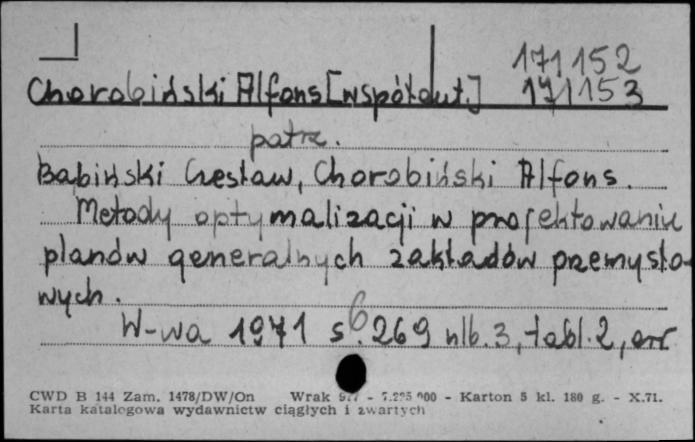 171152
Chorobiński Alfons [współaut.] 171153
patrz.
Babiński Czesław, Chorobiński Alfons.
Metody optymalizacji w projektowaniu
planów generalnych zakładów przemysło-
wych.
W-wa 1971 s. 269 nlb. 3, tabl. 2, err
6
CWD B 144 Zam. 1478/DW/On Wrak - - Karton 5 kl. 180 g. - X.71.
Karta katalogowa wydawnictw ciągłych i zwartych